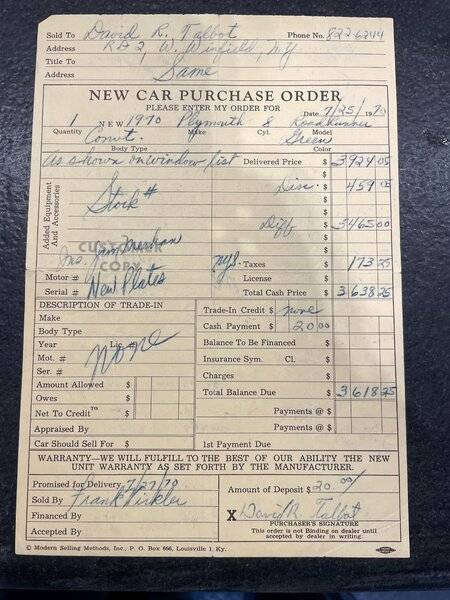 Sold To David R. Talbot Phone No. 822-6244
Address RD 2, W. Winfield, NY
Title To
Address Same
NEW CAR PURCHASE ORDER
PLEASE ENTER MY ORDER FOR Date 7/25/1970
1 NEW 1970 Plymouth 8 Road Runner
Quantity Make Cyl. Model
Convt. Green
Body Type Color
As shown on window list Delivered Price $ 3924 05
Disc. $ 459 05
Added Equipment And Accessories
Stock # $
Diff $ 3465 00
CUSTOMER COPY
NYS. Taxes $ 173 25
Motor # New Plates License $
Serial # Total Cash Price $ 3638 25
DESCRIPTION OF TRADE-IN Trade-In Credit $ none
Make Cash Payment $ 20 00
Body Type
Year Lic. # Balance To Be Financed $
Mot. # none Insurance Sym. Cl. $
Ser. # Charges $
Amount Allowed $ Total Balance Due $ 3618 25
Owes $
Net To Credit To $ Payments @ $
Appraised By Payments @ $
Car Should Sell For $ 1st Payment Due
WARRANTY—WE WILL FULFILL TO THE BEST OF OUR ABILITY THE NEW
UNIT WARRANTY AS SET FORTH BY THE MANUFACTURER.
Promised for Delivery 7/27/70 Amount of Deposit $ 20.00/
Sold By Frank
Financed By X David R. Talbot
PURCHASER'S SIGNATURE
Accepted By This order is not Binding on dealer until
accepted by dealer in writing.
© Modern Selling Methods, Inc., P. O. Box 666, Louisville 1, Ky.